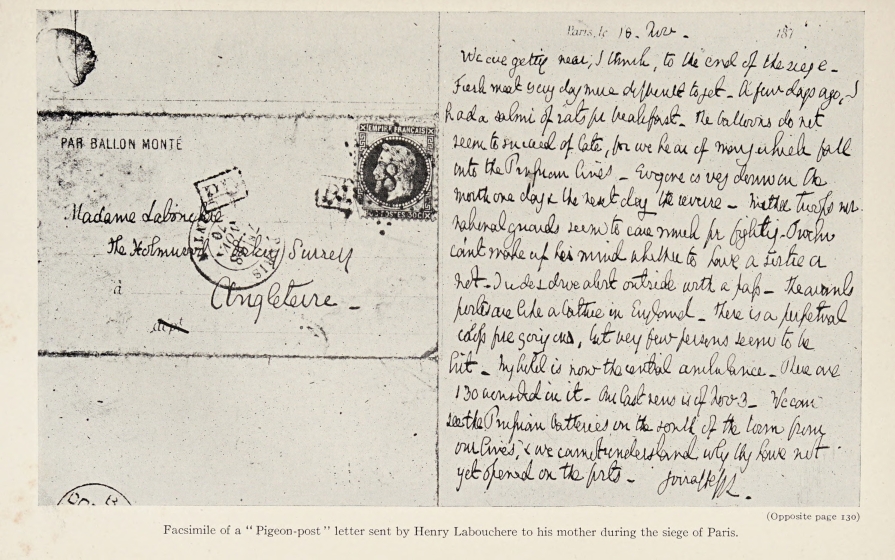 PAR BALLON MONTÉ
EMPIRE FRANÇAIS
Madame Labouchere
The Holmwood Surrey
à
Angleterre -
dépt
PARIS
Paris, le 18. Nov - 187
We are getting near, I think, to the end of the siege -
Fresh meat every day more difficult to get - A few days ago, I
had a salmi of rats for breakfast - The balloons do not
seem to succeed of late, for we hear of many which fall
into the Prussian lines - Everyone is very down in the
mouth one day & the next day the reverse - Neither troops nor
national guards seem to care much for fighting - Trochu
can't make up his mind whether to have a sortie or
not - I ride & drive about outside with a pass - The
are like a battue in England - There is a perpetual
fire going on, but very few persons seem to be
hit - My hotel is now the central ambulance - There are
130 wounded in it - Our last news is of Nov 3 - We can
see the Prussian batteries on the south of the town from
our lines, & we cannot understand why they have not
yet opened on the forts -
(Opposite page 130)
Facsimile of a "Pigeon-post" letter sent by Henry Labouchere to his mother during the siege of Paris.